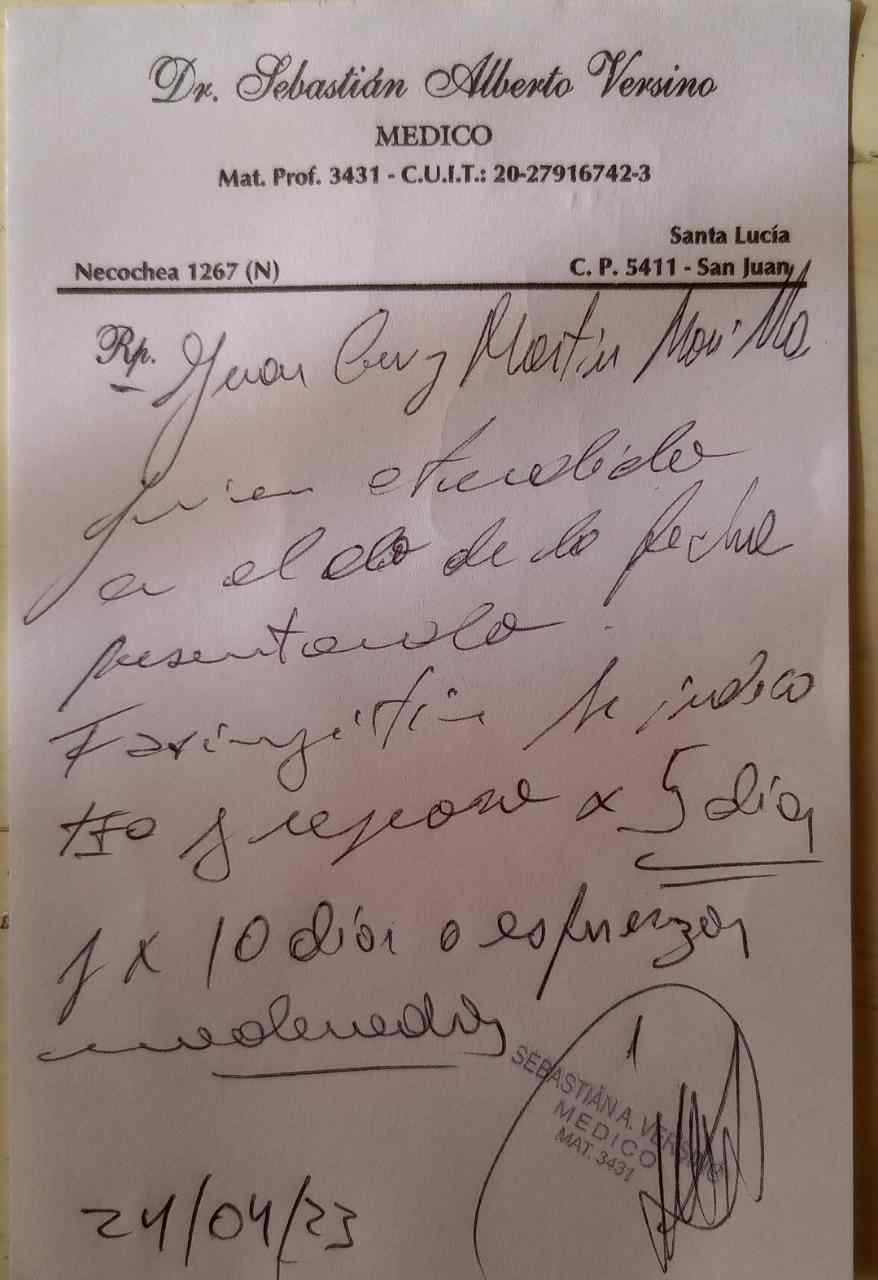 Dr. Sebastián Alberto Versino
MEDICO
Mat. Prof. 3431 - C.U.I.T.: 20-27916742-3
Santa Lucía
Necochea 1267 (N)
C. P. 5411 - San Juan
Rp. Juan Cruz Martin
atendido
en el día de la fecha
presentando
Faringitis se indica
tto y reposo x 5 días
y x 10 días a esfuerzos
moderados
SEBASTIÁN A. VERSINO
MEDICO
MAT. 3431
24/04/23